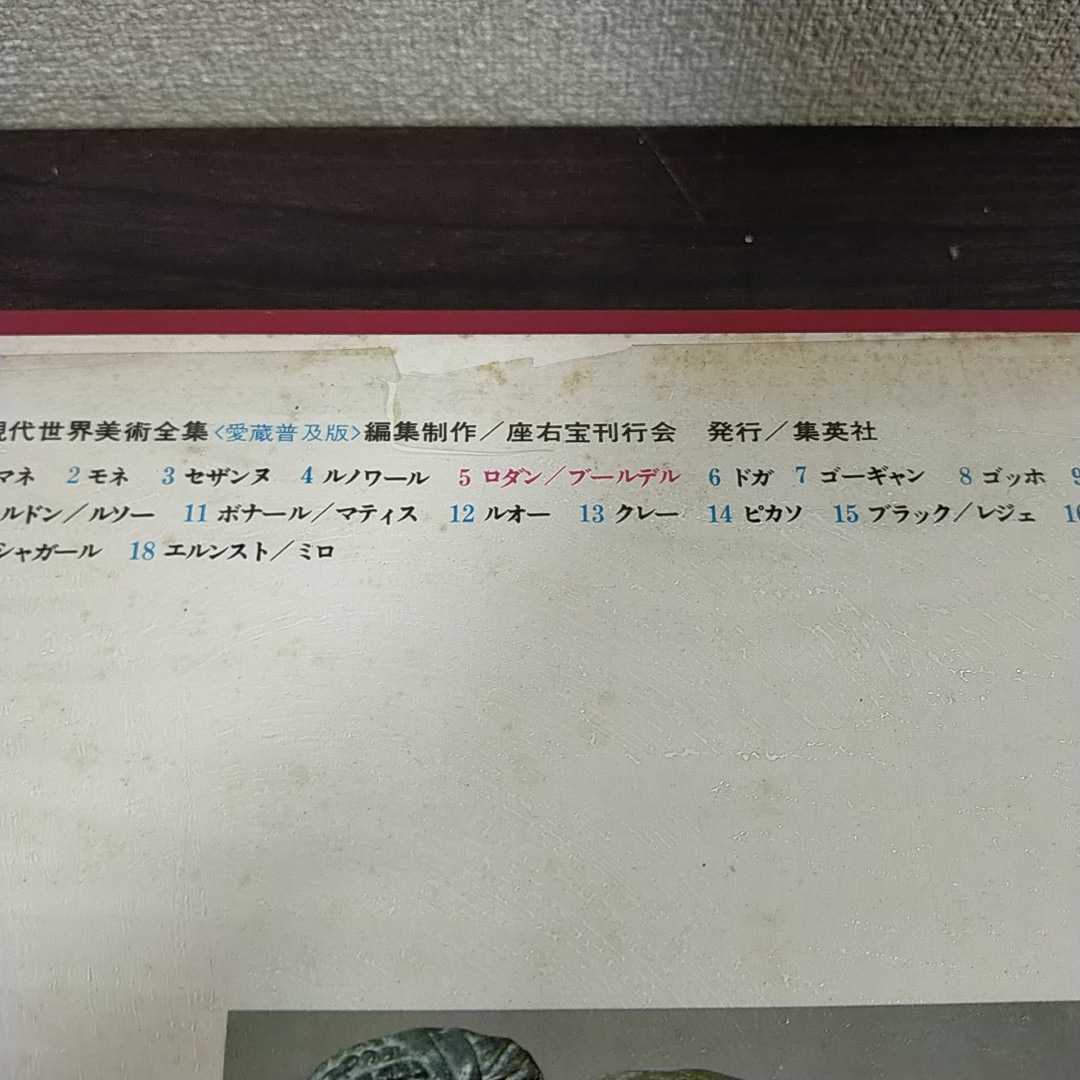 現代世界美術全集〈愛蔵普及版〉編集制作／座右宝刊行会 発行／集英社
マネ 2 モネ 3 セザンヌ 4 ルノワール 5 ロダン／ブールデル 6 ドガ 7 ゴーギャン 8 ゴッホ 9
ルドン／ルソー 11 ボナール／マティス 12 ルオー 13 クレー 14 ピカソ 15 ブラック／レジェ
シャガール 18 エルンスト／ミロ